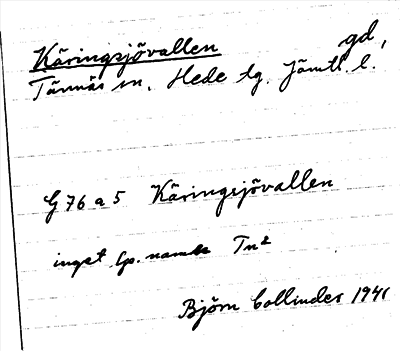 Käringsjövallen gd,
Tännäs sn. Hede tg. Jämtl. l.
G 76 a 5 Käringsjövallen
inget lp. namn Tn2
Björn Collinder 1941